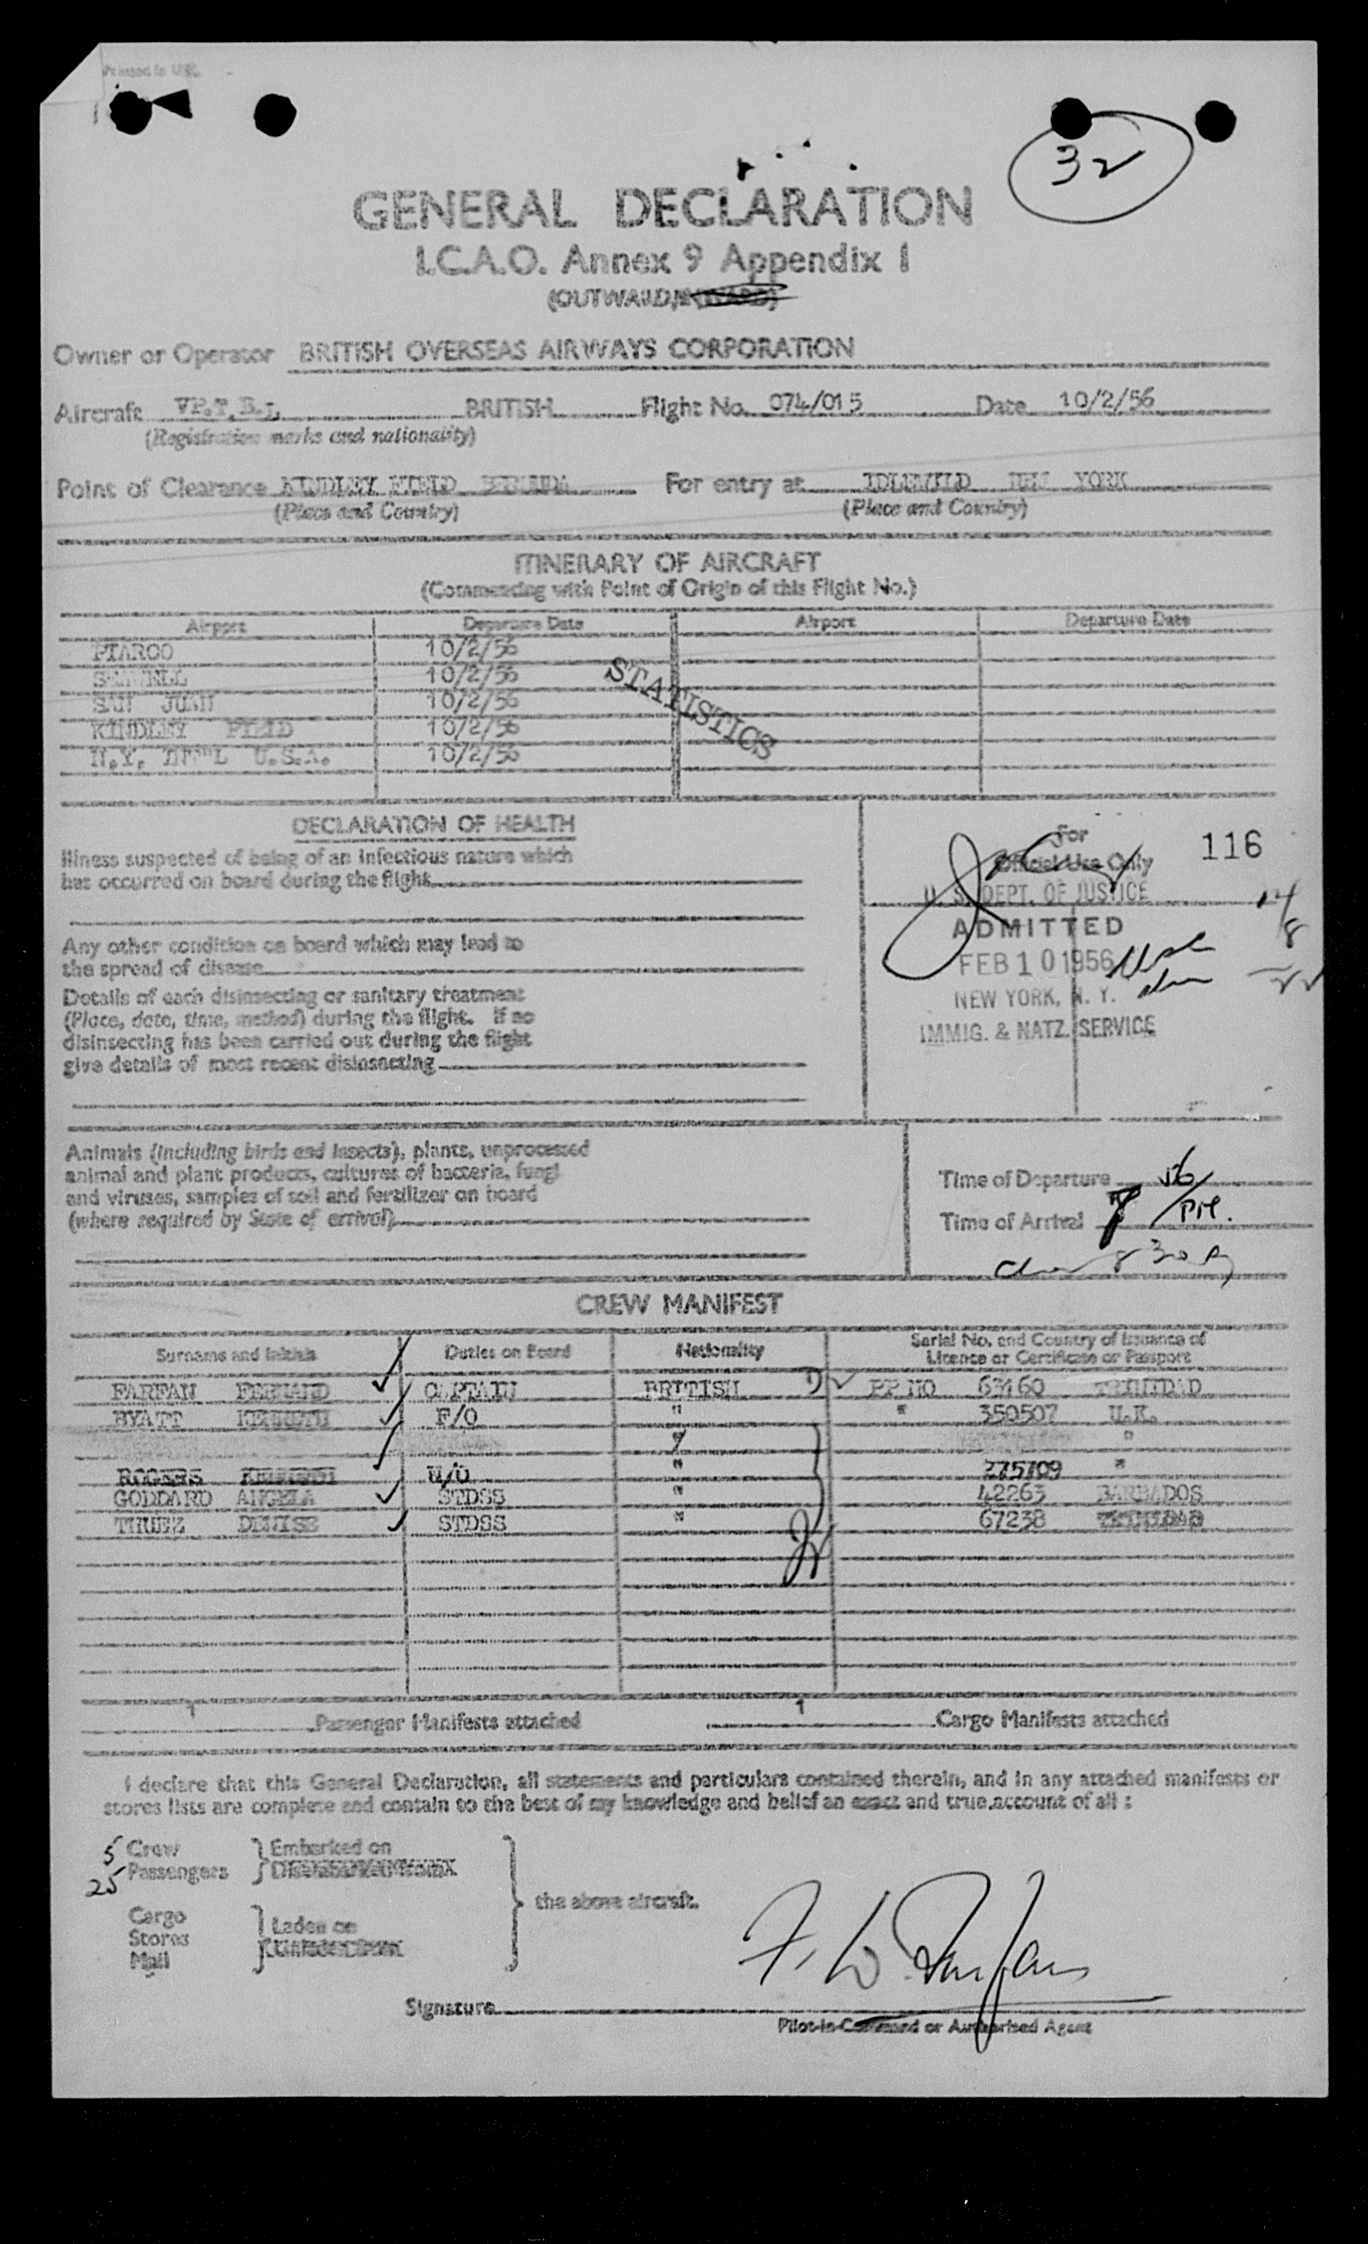 Printed in
32
GENERAL DECLARATION
I.C.A.O. Annex 9 Appendix 1
(OUTWARD/INWARD)
Owner or Operator BRITISH OVERSEAS AIRWAYS CORPORATION
Aircraft VP.T.B.L BRITISH Flight No. 074/015 Date 10/2/56
(Registration marks and nationality)
Point of Clearance KINDLEY FIELD BERMUDA For entry at IDLEWILD NEW YORK
(Place and Country) (Place and Country)
ITINERARY OF AIRCRAFT
(Commencing with Point of Origin of this Flight No.)
Airport Departure Date Airport Departure Date
PIARCO 10/2/56
SEAWELL 10/2/56
SAN JUAN 10/2/56
KINDLEY FIELD 10/2/56
N.Y. INT'L U.S.A. 10/2/56
STATISTICS
DECLARATION OF HEALTH
Illness suspected of being of an infectious nature which
has occurred on board during the flight
Any other condition on board which may lead to
the spread of disease
Details of each disinsecting or sanitary treatment
(Place, date, time, method) during the flight. If no
disinsecting has been carried out during the flight
give details of most recent disinsecting
For
Official Use Only
116
U. S. DEPT. OF JUSTICE
ADMITTED
FEB 10 1956
NEW YORK, N. Y.
IMMIG. & NATZ. SERVICE
14
8
22
Animals (including birds and insects), plants, unprocessed
animal and plant products, cultures of bacteria, fungi
and viruses, samples of soil and fertilizer on board
(where required by State of arrival)
Time of Departure
Time of Arrival 7 PM.
8 30 P
CREW MANIFEST
Surname and Initials Duties on Board Nationality Serial No. and Country of Issuance of
Licence or Certificate or Passport
FARFAN FERNAND CAPTAIN BRITISH PP NO 63160 TRINIDAD
BYATT KENNETH F/O " " 350507 U.K.
" "
ROGERS R/O " 275709 "
GODDARD ANGELA STDSS " 42263 BARBADOS
DENISE STDSS " 67238 TRINIDAD
1 Passenger Manifests attached 1 Cargo Manifests attached
I declare that this General Declaration, all statements and particulars contained therein, and in any attached manifests or
stores lists are complete and contain to the best of my knowledge and belief an exact and true account of all :
5 Crew Embarked on
25 Passengers
the above aircraft.
Cargo Laden on
Stores
Mail
F. W. Farfan
Signature
Pilot-in-Command or Authorised Agent